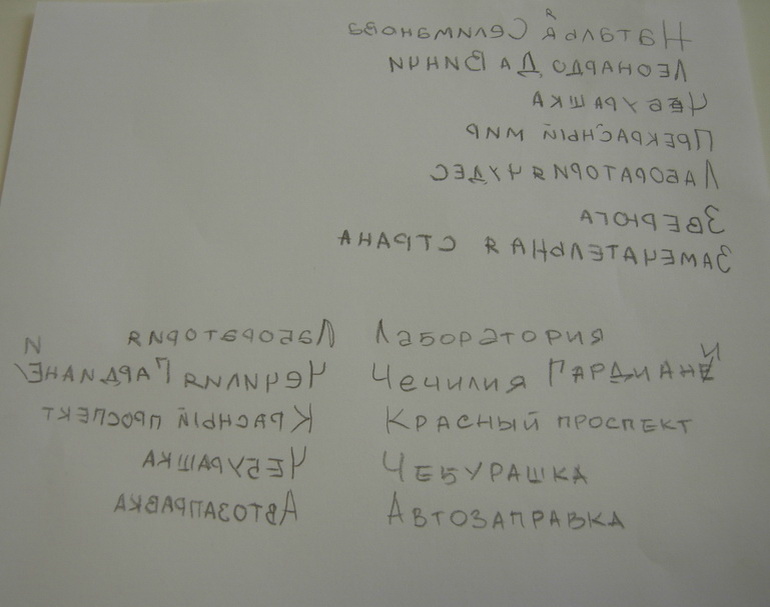 Наталья Селиманова
Леонардо Да Винчи
Чебурашка
Прекрасный мир
Лаборатория чудес
Зверюга
Замечательная страна
Лаборатория Лаборатория
Чечилия Гардиане И Чечилия Гардиане И
Красный проспект Красный проспект
Чебурашка Чебурашка
Автозаправка Автозаправка